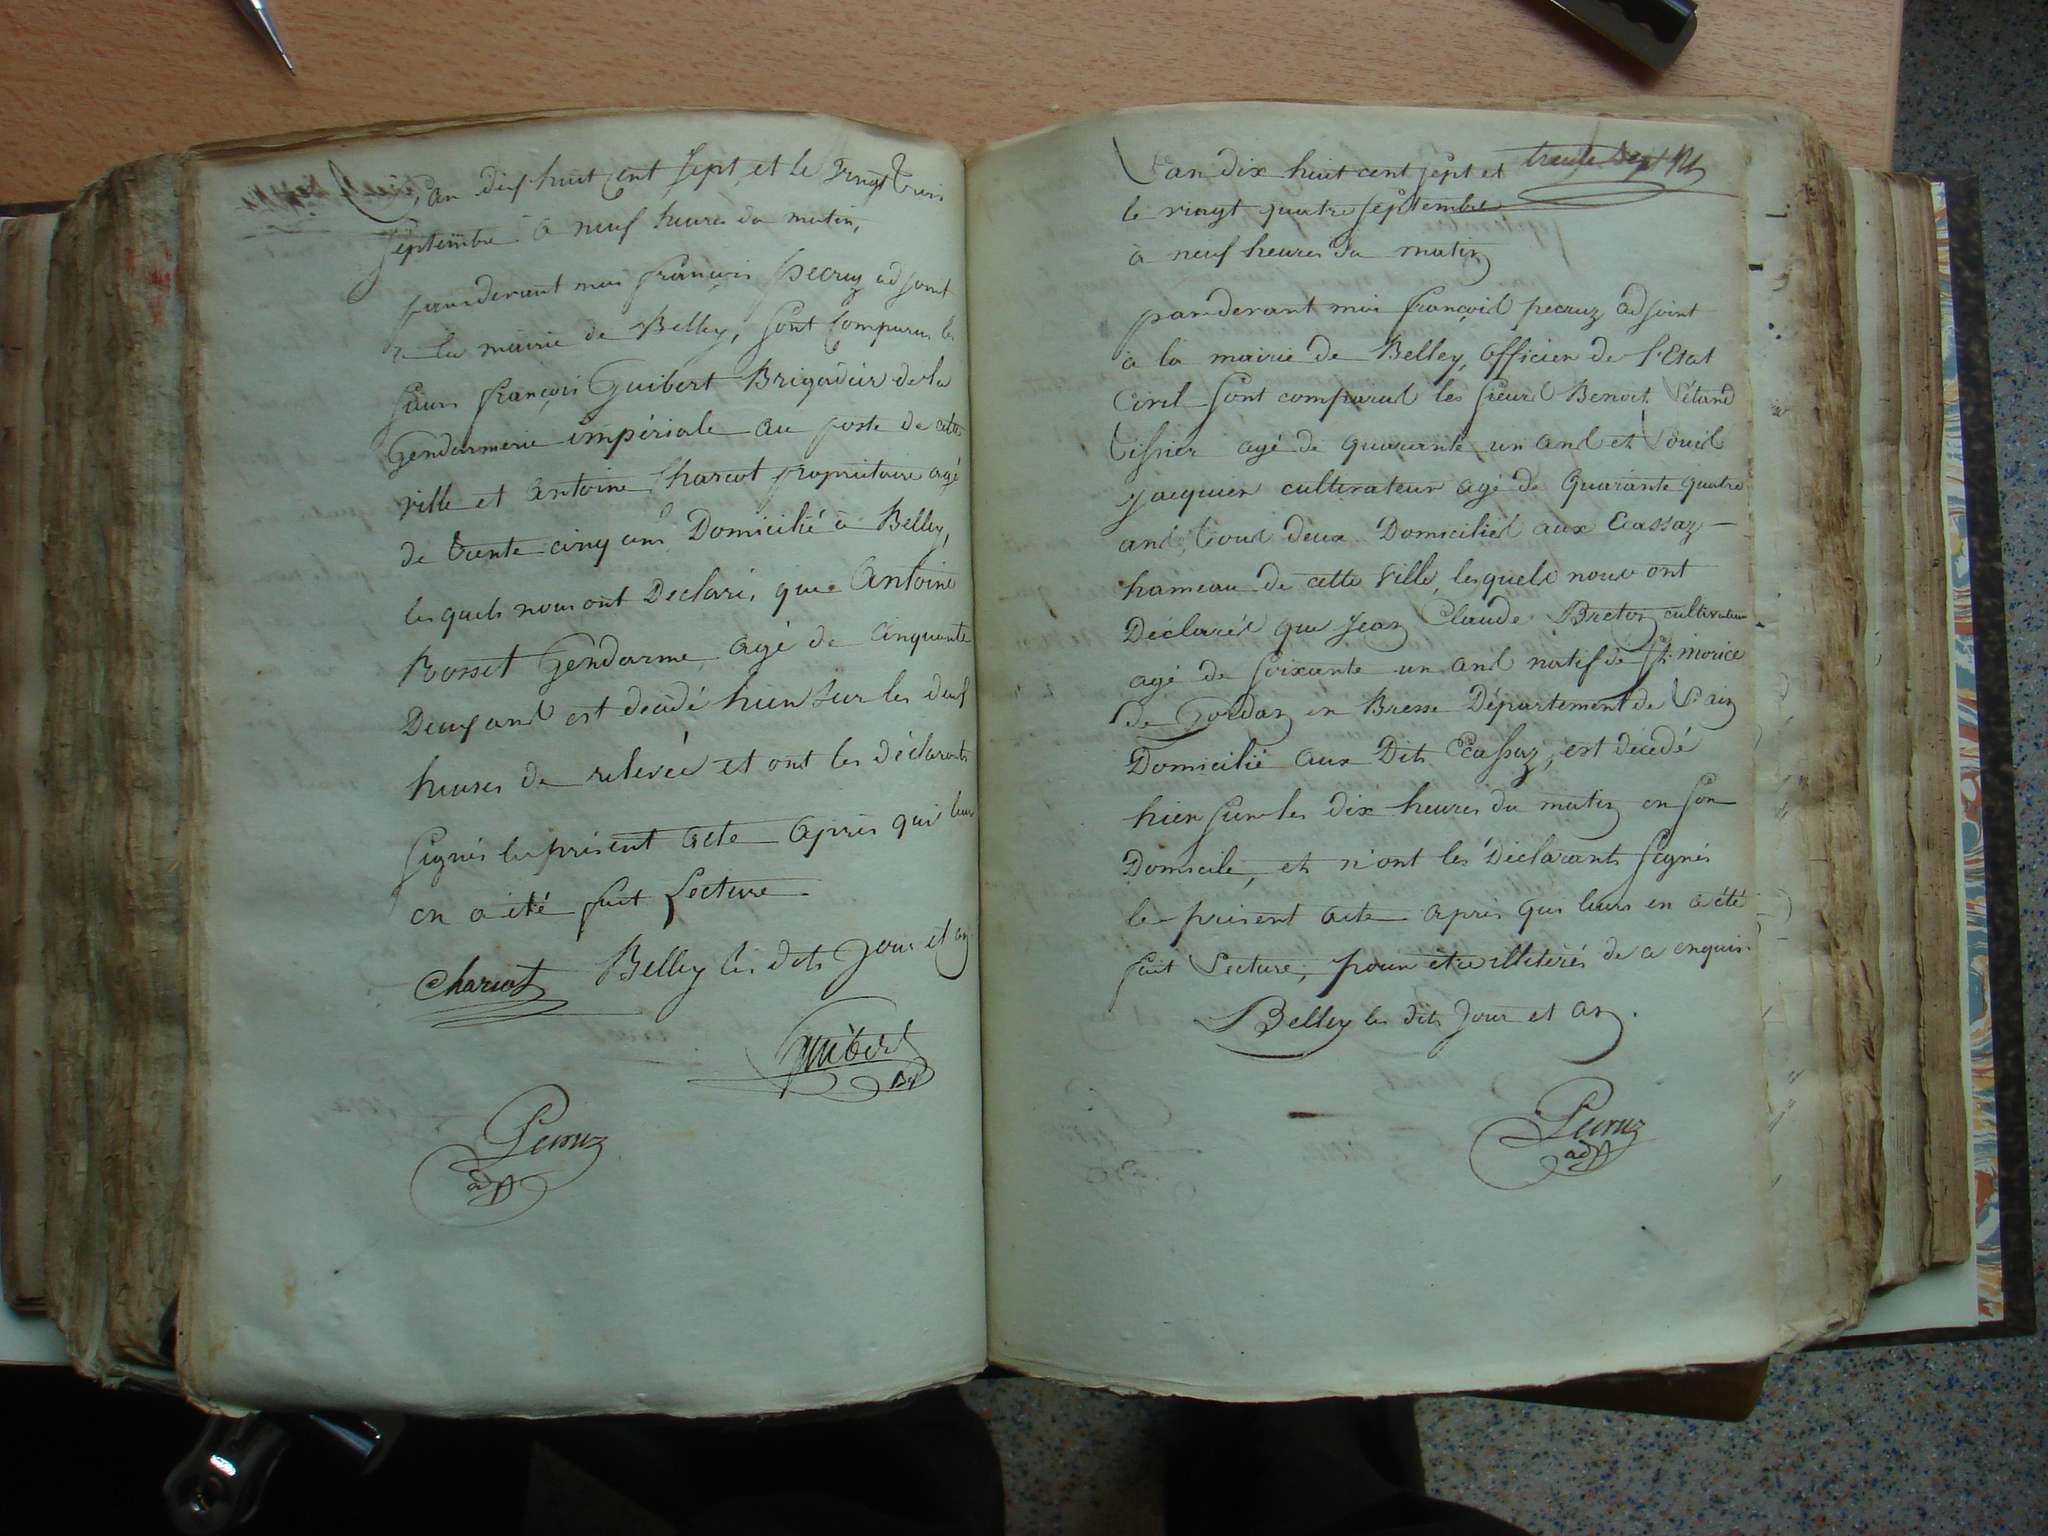 L'an dix huit cent sept, et le vingt trois
septembre à neuf heures du matin,
pardevant moi françois Pecruz adjoint
a la mairie de Belley, sont comparus les
sieurs françois Guibert Brigadier de la
Gendarmerie impériale au poste de cette
ville et Antoine Charcot propriétaire agé
de trente cinq ans Domicilié à Belley,
lesquels nous ont Déclaré, que Antoine
Rosset Gendarme, agé de Cinquante
Deux ans est décédé hier sur les deux
heures de relevée et ont les déclarants
signés le présent acte après que leur
en a été fait Lecture.
Belley les dits Jour et an.
Charcot
Guibert
Bdr
Pecruz
adjt
trente sept
L'an dix huit cent sept et
le vingt quatre septembre
à neuf heures du matin
par-devant moi françois pecruz adjoint
à la mairie de Belley, officier de l'Etat
Civil sont comparus les sieurs Benoit
Tissier agé de quarante un ans et Louis
Jacquier cultivateur agé de Quarante quatre
ans, Tous deux Domiciliés aux Ecassaz
hameau de cette Ville, lesquels nous ont
Déclarés que Jean Claude Breton cultivateur
agé de soixante un ans natif de St. morice
de Gordan en Bresse Département de L'ain
Domicilié aux Dits Ecassaz, est décedé
hier sur les dix heures du matin en son
Domicile, et n'ont les Déclarants signés
le présent acte après que leurs en a été
fait Lecture, pour être illiterés de ce enquis.
Belley les dits Jour et an.
Pecruz
adjt